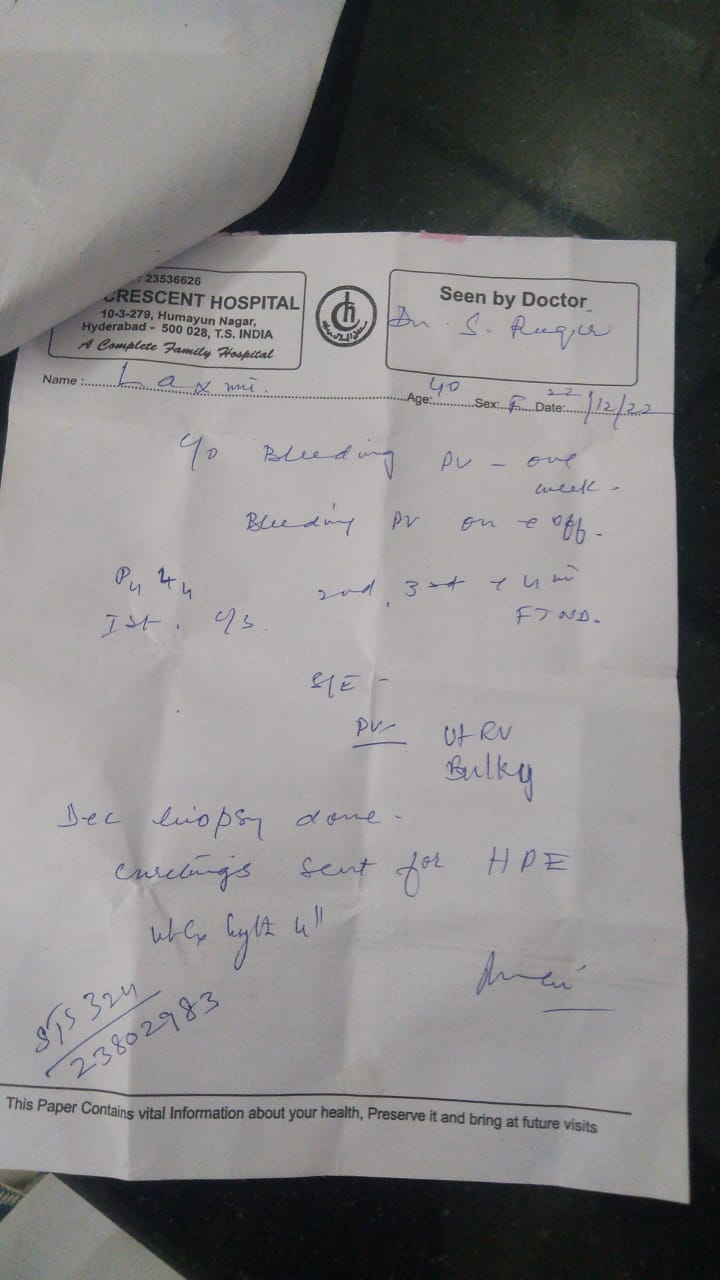 : 23536626
CRESCENT HOSPITAL
10-3-279, Humayun Nagar,
Hyderabad - 500 028, T.S. INDIA
A Complete Family Hospital
Seen by Doctor
Dr. S.
Name : Laxmi. Age: 40 Sex: F Date: 22/12/22
c/o Bleeding PV - one
week.
Bleeding PV on & off.
P4 L4 2nd, 3rd & 4th
Ist. c/s. FTND.
S/E -
PV- Ut RV
Bulky
D&C biopsy done.
curettings sent for HPE
4"
324
23802983
This Paper Contains vital Information about your health, Preserve it and bring at future visits